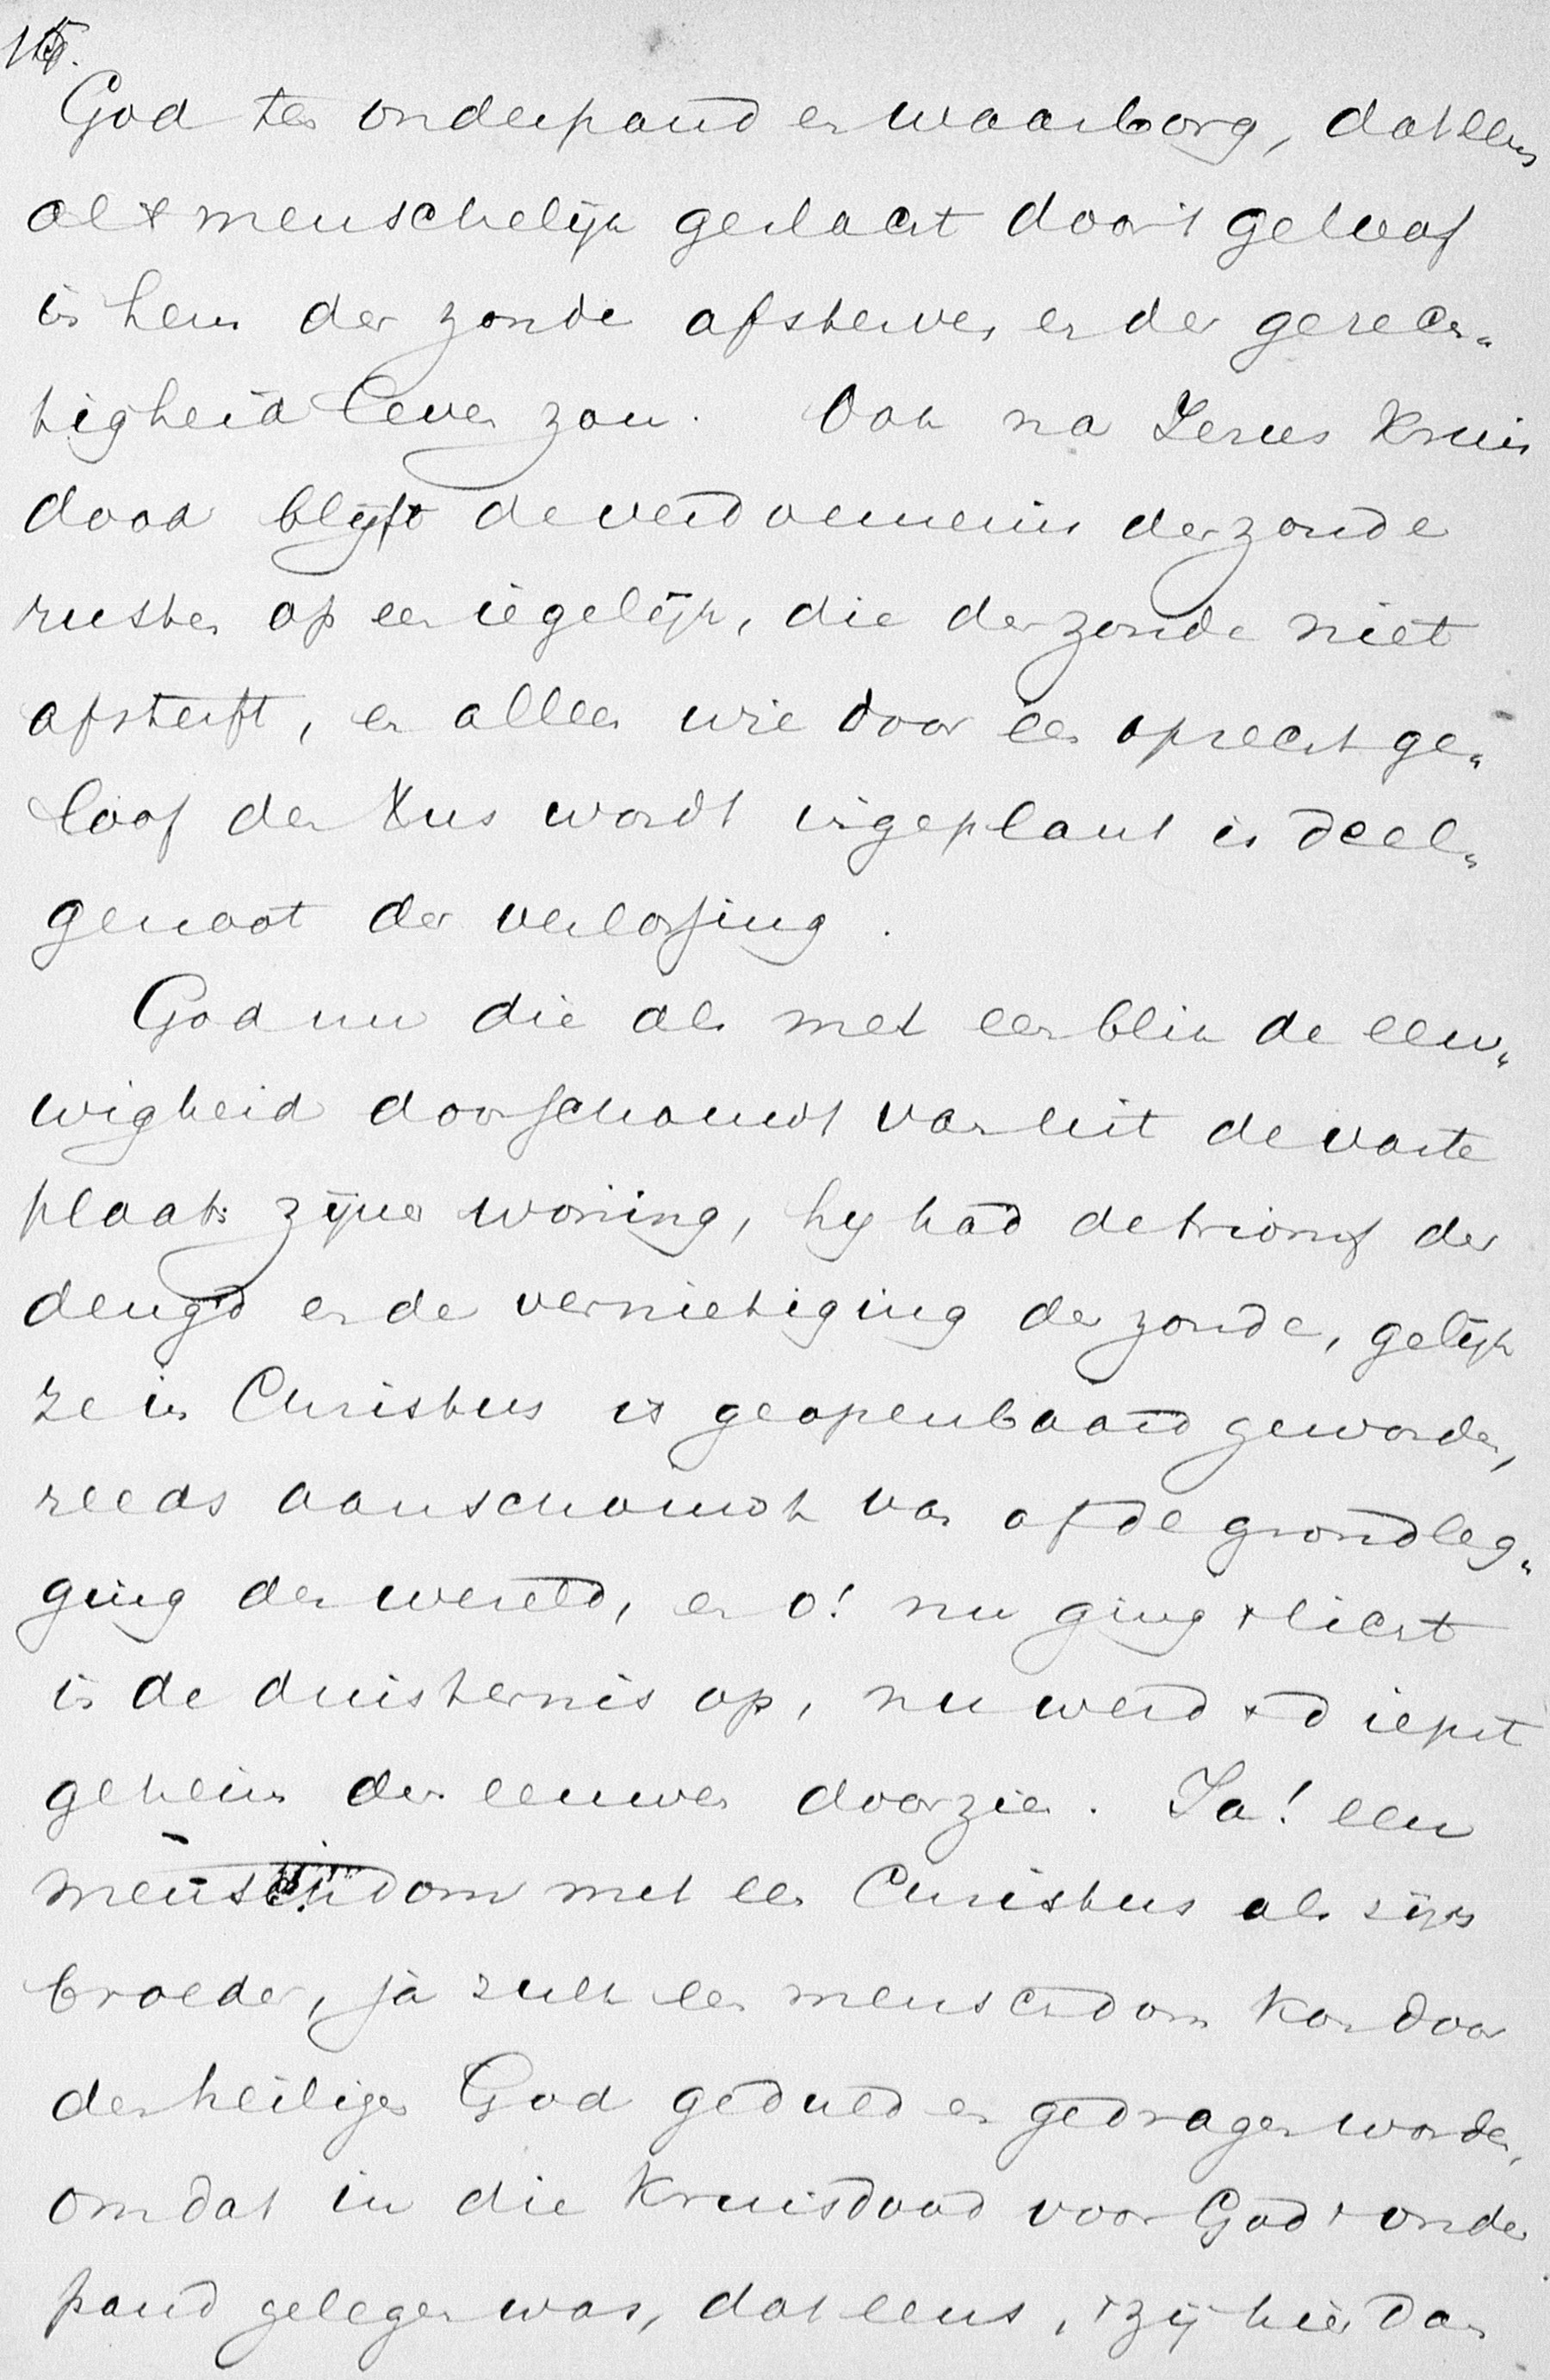 15.
God ten onderpand en waarborg, dat eens
al 't menschelijk geslacht door 't geloof
in hem der zonde afsterven en der gerech„
tigheid leven zou. Ook na Jezus kruis
dood blijft de verdoemenis der zonde
rusten op een iegelijk, die der zonde niet
afsterft, en alleen wie door een oprecht ge„
loof den Xus wordt ingeplant is deel„
genoot der verlossing.
God nu die als met een blik de eeu„
wigheid doorschouwt van uit de vaste
plaats zijner woning, hy had de triomf der
deugd en de vernietiging der zonde, gelijk
ze in Christus is geopenbaard geworden,
reeds aanschouwt van af de grondleg„
ging der wereld, en o! nu ging 't licht
in de duisternis op, nu werd 't diepst
geheim der eeuwen doorzien. Ja! een
menschdom met een Christus als zijn
broeder, ja zulk een menschdom kon door
den heiligen God geduld en gedragen worden,
omdat in die kruisdood voor God 't onder
pand gelegen was, dat eens, 't zij hier dan